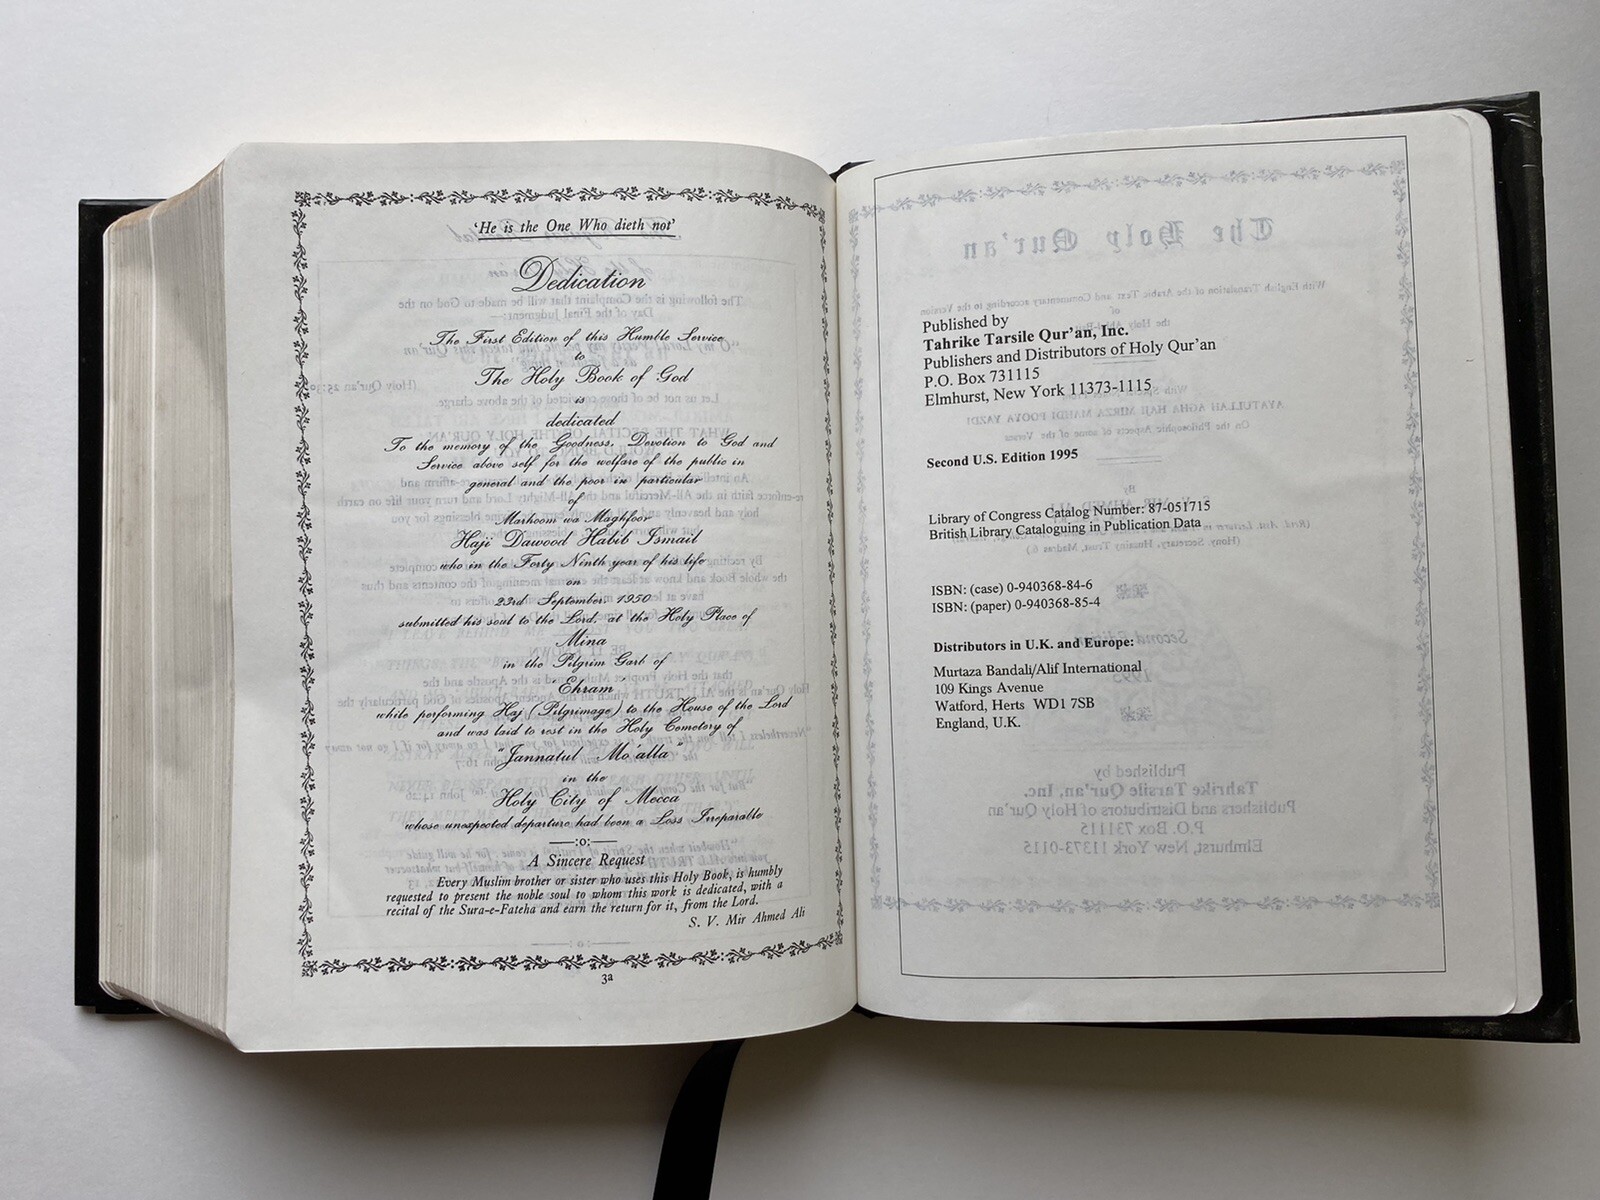 'He is the One Who dieth not'
Dedication
The First Edition of this Humble Service
to
The Holy Book of God
is
dedicated
To the memory of the Goodness, Devotion to God and
Service above self for the welfare of the public in
general and the poor in particular
of
Marhoom wa Maghfoor
Haji Dawood Habib Ismail
who in the Forty Ninth year of his life
on
23rd September, 1950
submitted his soul to the Lord, at the Holy Place of
Mina
in the Pilgrim Garb of
'Ehram'
while performing Haj (Pilgrimage) to the House of the Lord
and was laid to rest in the Holy Cemetery of
"Jannatul Mo'alla"
in the
Holy City of Mecca
whose unexpected departure had been a Loss Irreparable
:o:
A Sincere Request
Every Muslim brother or sister who uses this Holy Book, is humbly
requested to present the noble soul to whom this work is dedicated, with a
recital of the Sura-e-Fateha and earn the return for it, from the Lord.
S. V. Mir Ahmed Ali
3a
Published by
Tahrike Tarsile Qur'an, Inc.
Publishers and Distributors of Holy Qur'an
P.O. Box 731115
Elmhurst, New York 11373-1115
Second U.S. Edition 1995
Library of Congress Catalog Number: 87-051715
British Library Cataloguing in Publication Data
ISBN: (case) 0-940368-84-6
ISBN: (paper) 0-940368-85-4
Distributors in U.K. and Europe:
Murtaza Bandali/Alif International
109 Kings Avenue
Watford, Herts WD1 7SB
England, U.K.